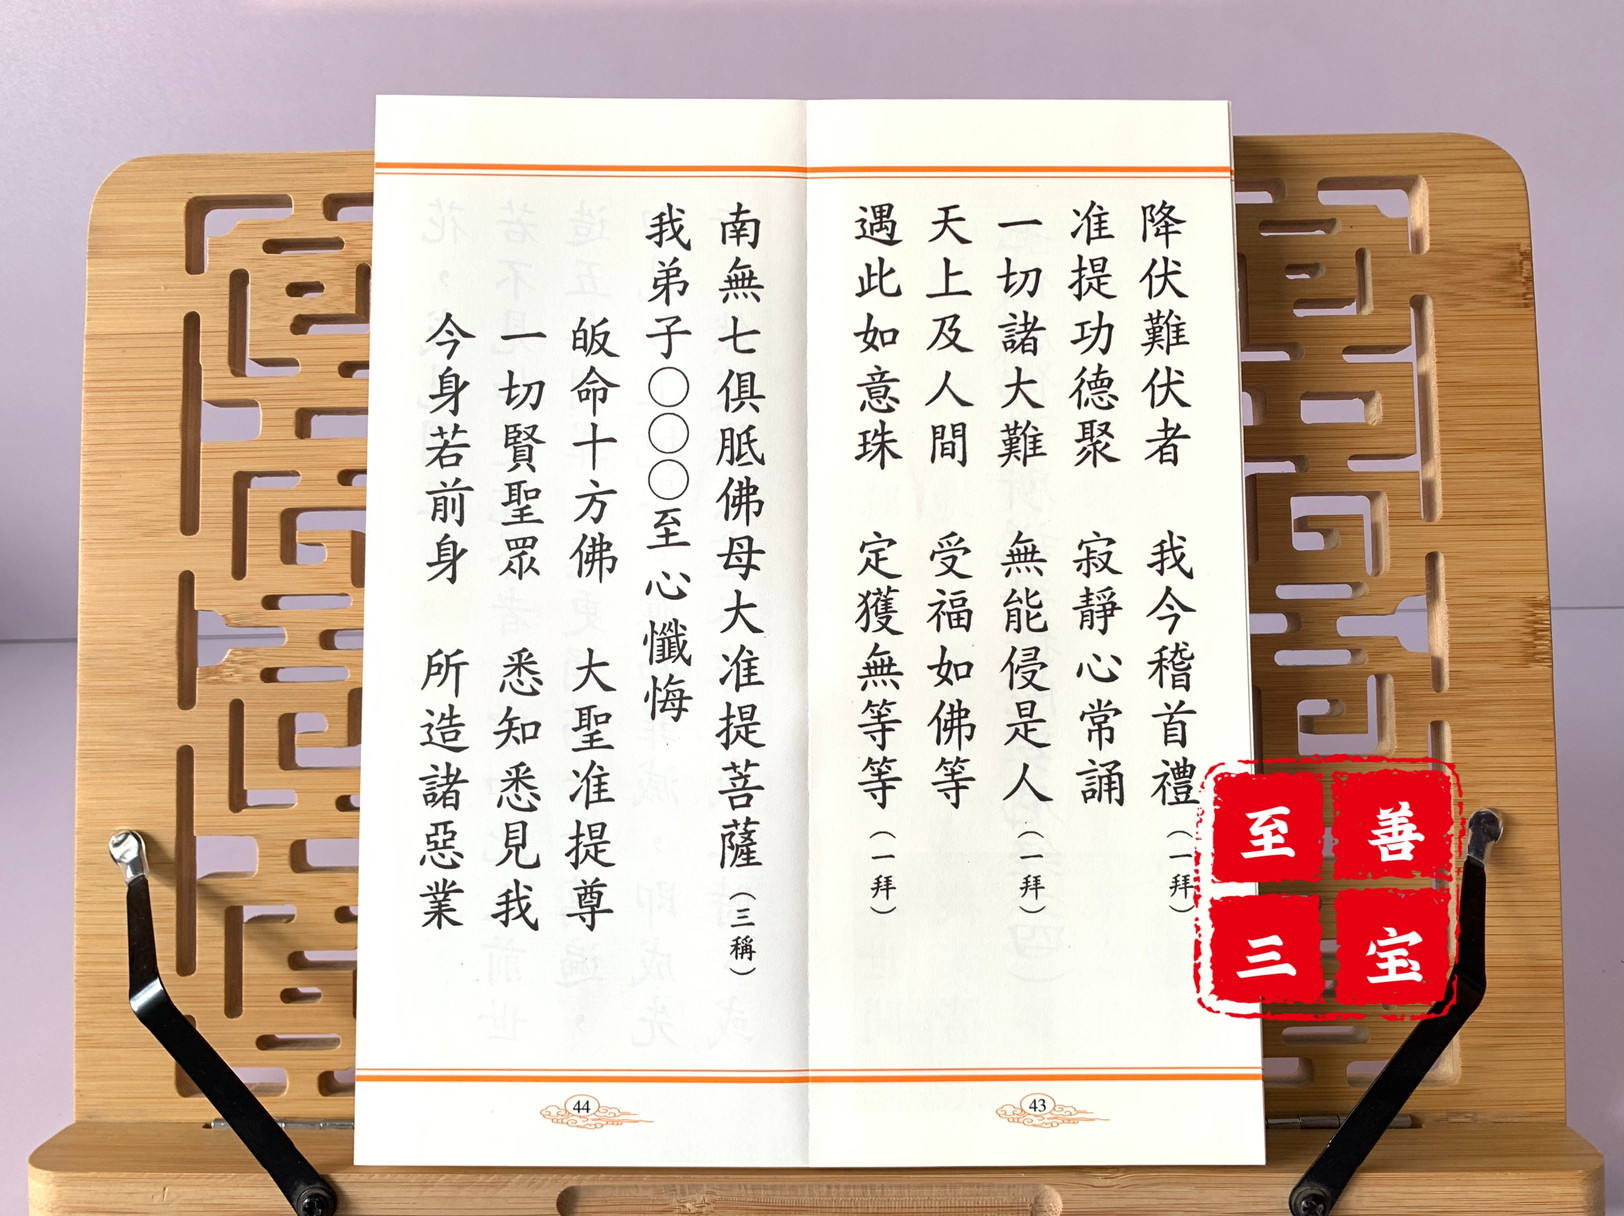 降伏難伏者　我今稽首禮（一拜）
准提功德聚　寂靜心常誦
一切諸大難　無能侵是人（一拜）
天上及人間　受福如佛等
遇此如意珠　定獲無等等（一拜）
43
南無七俱胝佛母大准提菩薩（三稱）
我弟子○○○至心懺悔
皈命十方佛　大聖准提尊
一切賢聖眾　悉知悉見我
今身若前身　所造諸惡業
44
至善
三宝